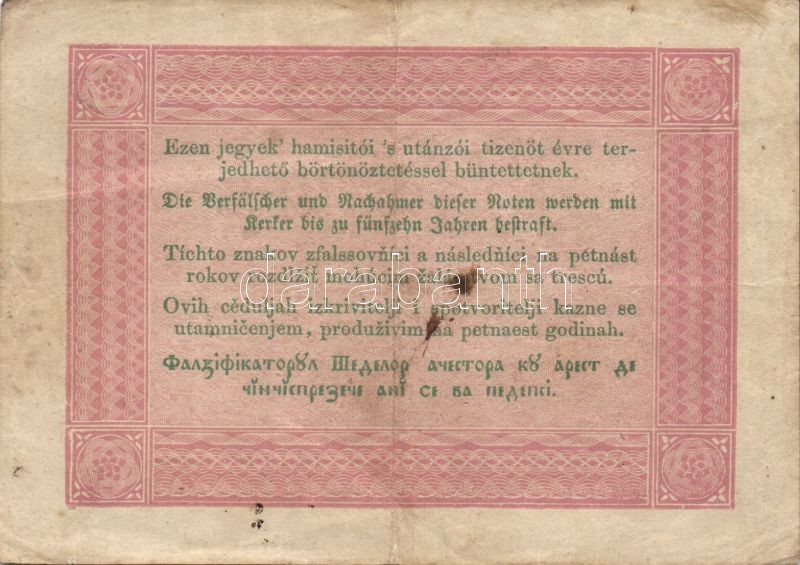 Ezen jegyek' hamisitói 's utánzói tizenöt évre ter-
jedhető börtönöztetéssel büntettetnek.
Die Verfälscher und Nachahmer dieser Noten werden mit
Kerker bis zu fünfzehn Jahren bestraft.
Tíchto znakov zfalssovňíci a následňíci na pétnást
rokov sa trescú.
darabanth
Ovih cěduljah izkrivitelji i spotvoritelji kazne se
utamničenjem, produživim na petnaest godinah.
Фалзіфікаторꙋл Шеделор ачестора кꙋ арест де
чінчіспрезече ані се ва педепсі.